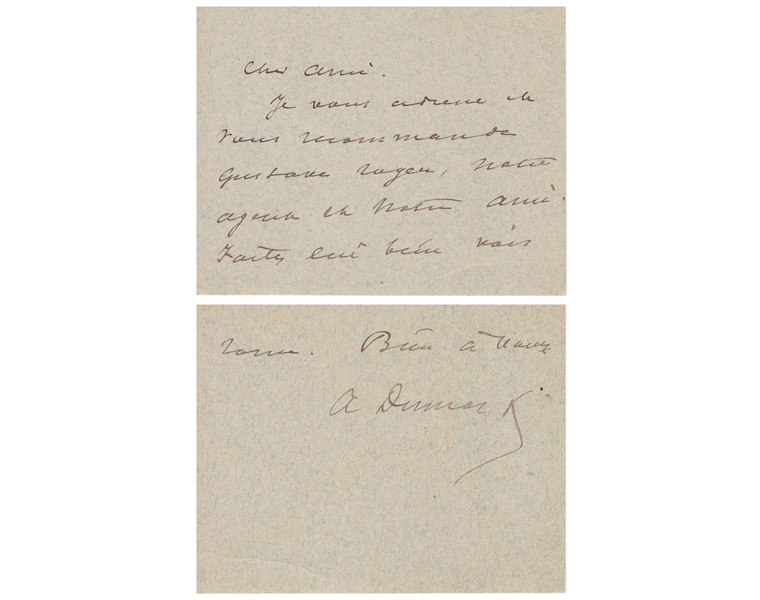 Cher ami.
Je vous adresse et
vous recommande
Gustave Roger, notre
agent et notre ami.
Faites lui bien voir
Rome. Bien à vous
A Dumas f